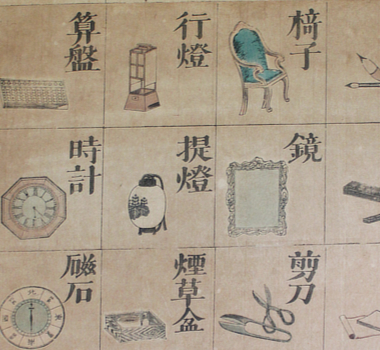 椅子
行燈
算盤
鏡
提燈
時計
剪刀
煙草盆
磁石